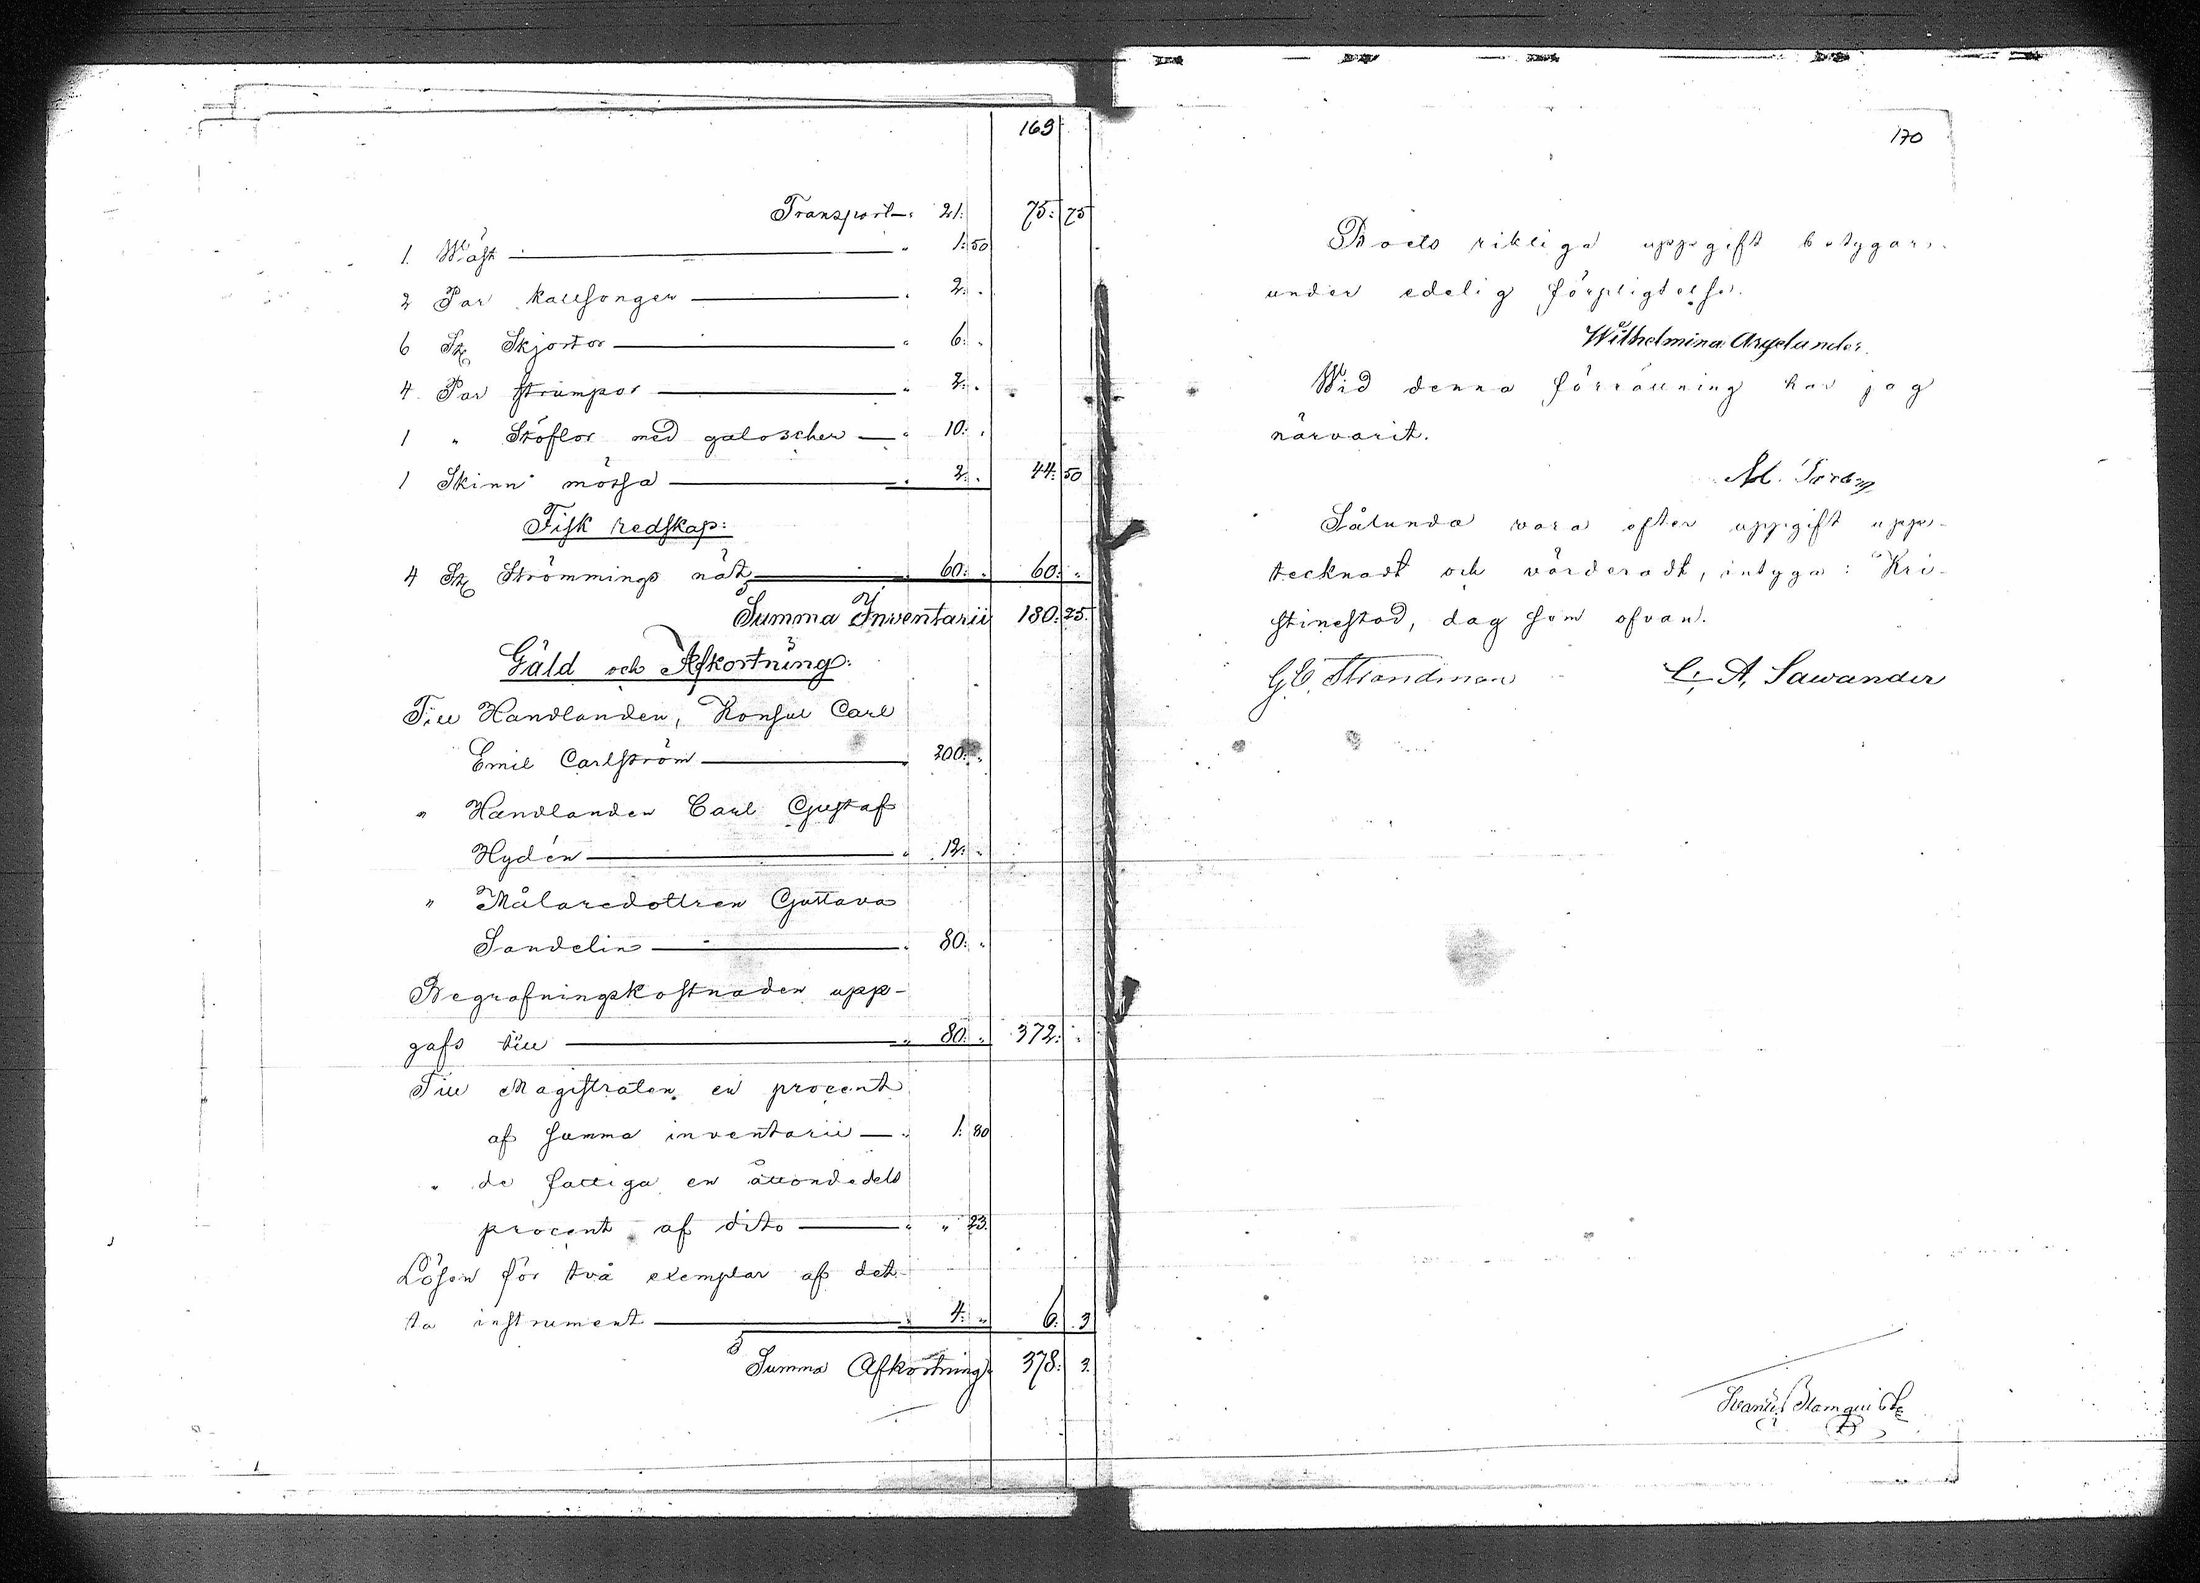 169
Transport — " 21: 75: 75
1. Wäst — " 1: 50
2 Par kallsonger — " 2: "
6 St. Skjortor — " 6: "
4 Par strumpor — " 2: "
1 " Stöflor med galoscher — " 10: "
1 Skinn mössa — " 2: " 44: 50
Fisk redskap:
4 St. Strömmings nät — " 60: " 60: "
Summa Inventarii 180: 25.
Gäld och Afkortning:
Till Handlanden, Konsul Carl
Emil Carlström — " 200: "
" Handlanden Carl Gustaf
Hydén — " 12: "
" Målaredottren Gustava
Sandelin — " 80: "
Begrafningskostnaden upp-
gafs till — " 80: " 372: "
Till Magistraten en procent
af summa inventarii — " 1: 80
" de fattiga en åttondedels
procent af dito — " " 23.
Lösen för två exemplar af det-
ta instrument — " 4: " 6: 3
Summa Afkortning 378: 3.
170
Boets riktiga uppgift betygar
under edelig förpligtelse.
Wilhelmina Argelander.
Wid denna förrättning har jag
närvarit.
Sålunda vara efter uppgift upp-
tecknadt och värderadt, intyga: Kri-
stinestad, dag som ofvan.
G. E. Strandman C. A. Sawander